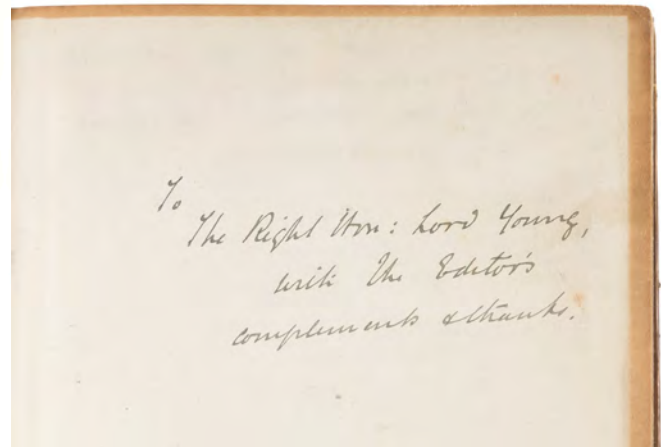 To
The Right Hon: Lord Young,
with the Editor's
complements & thanks.